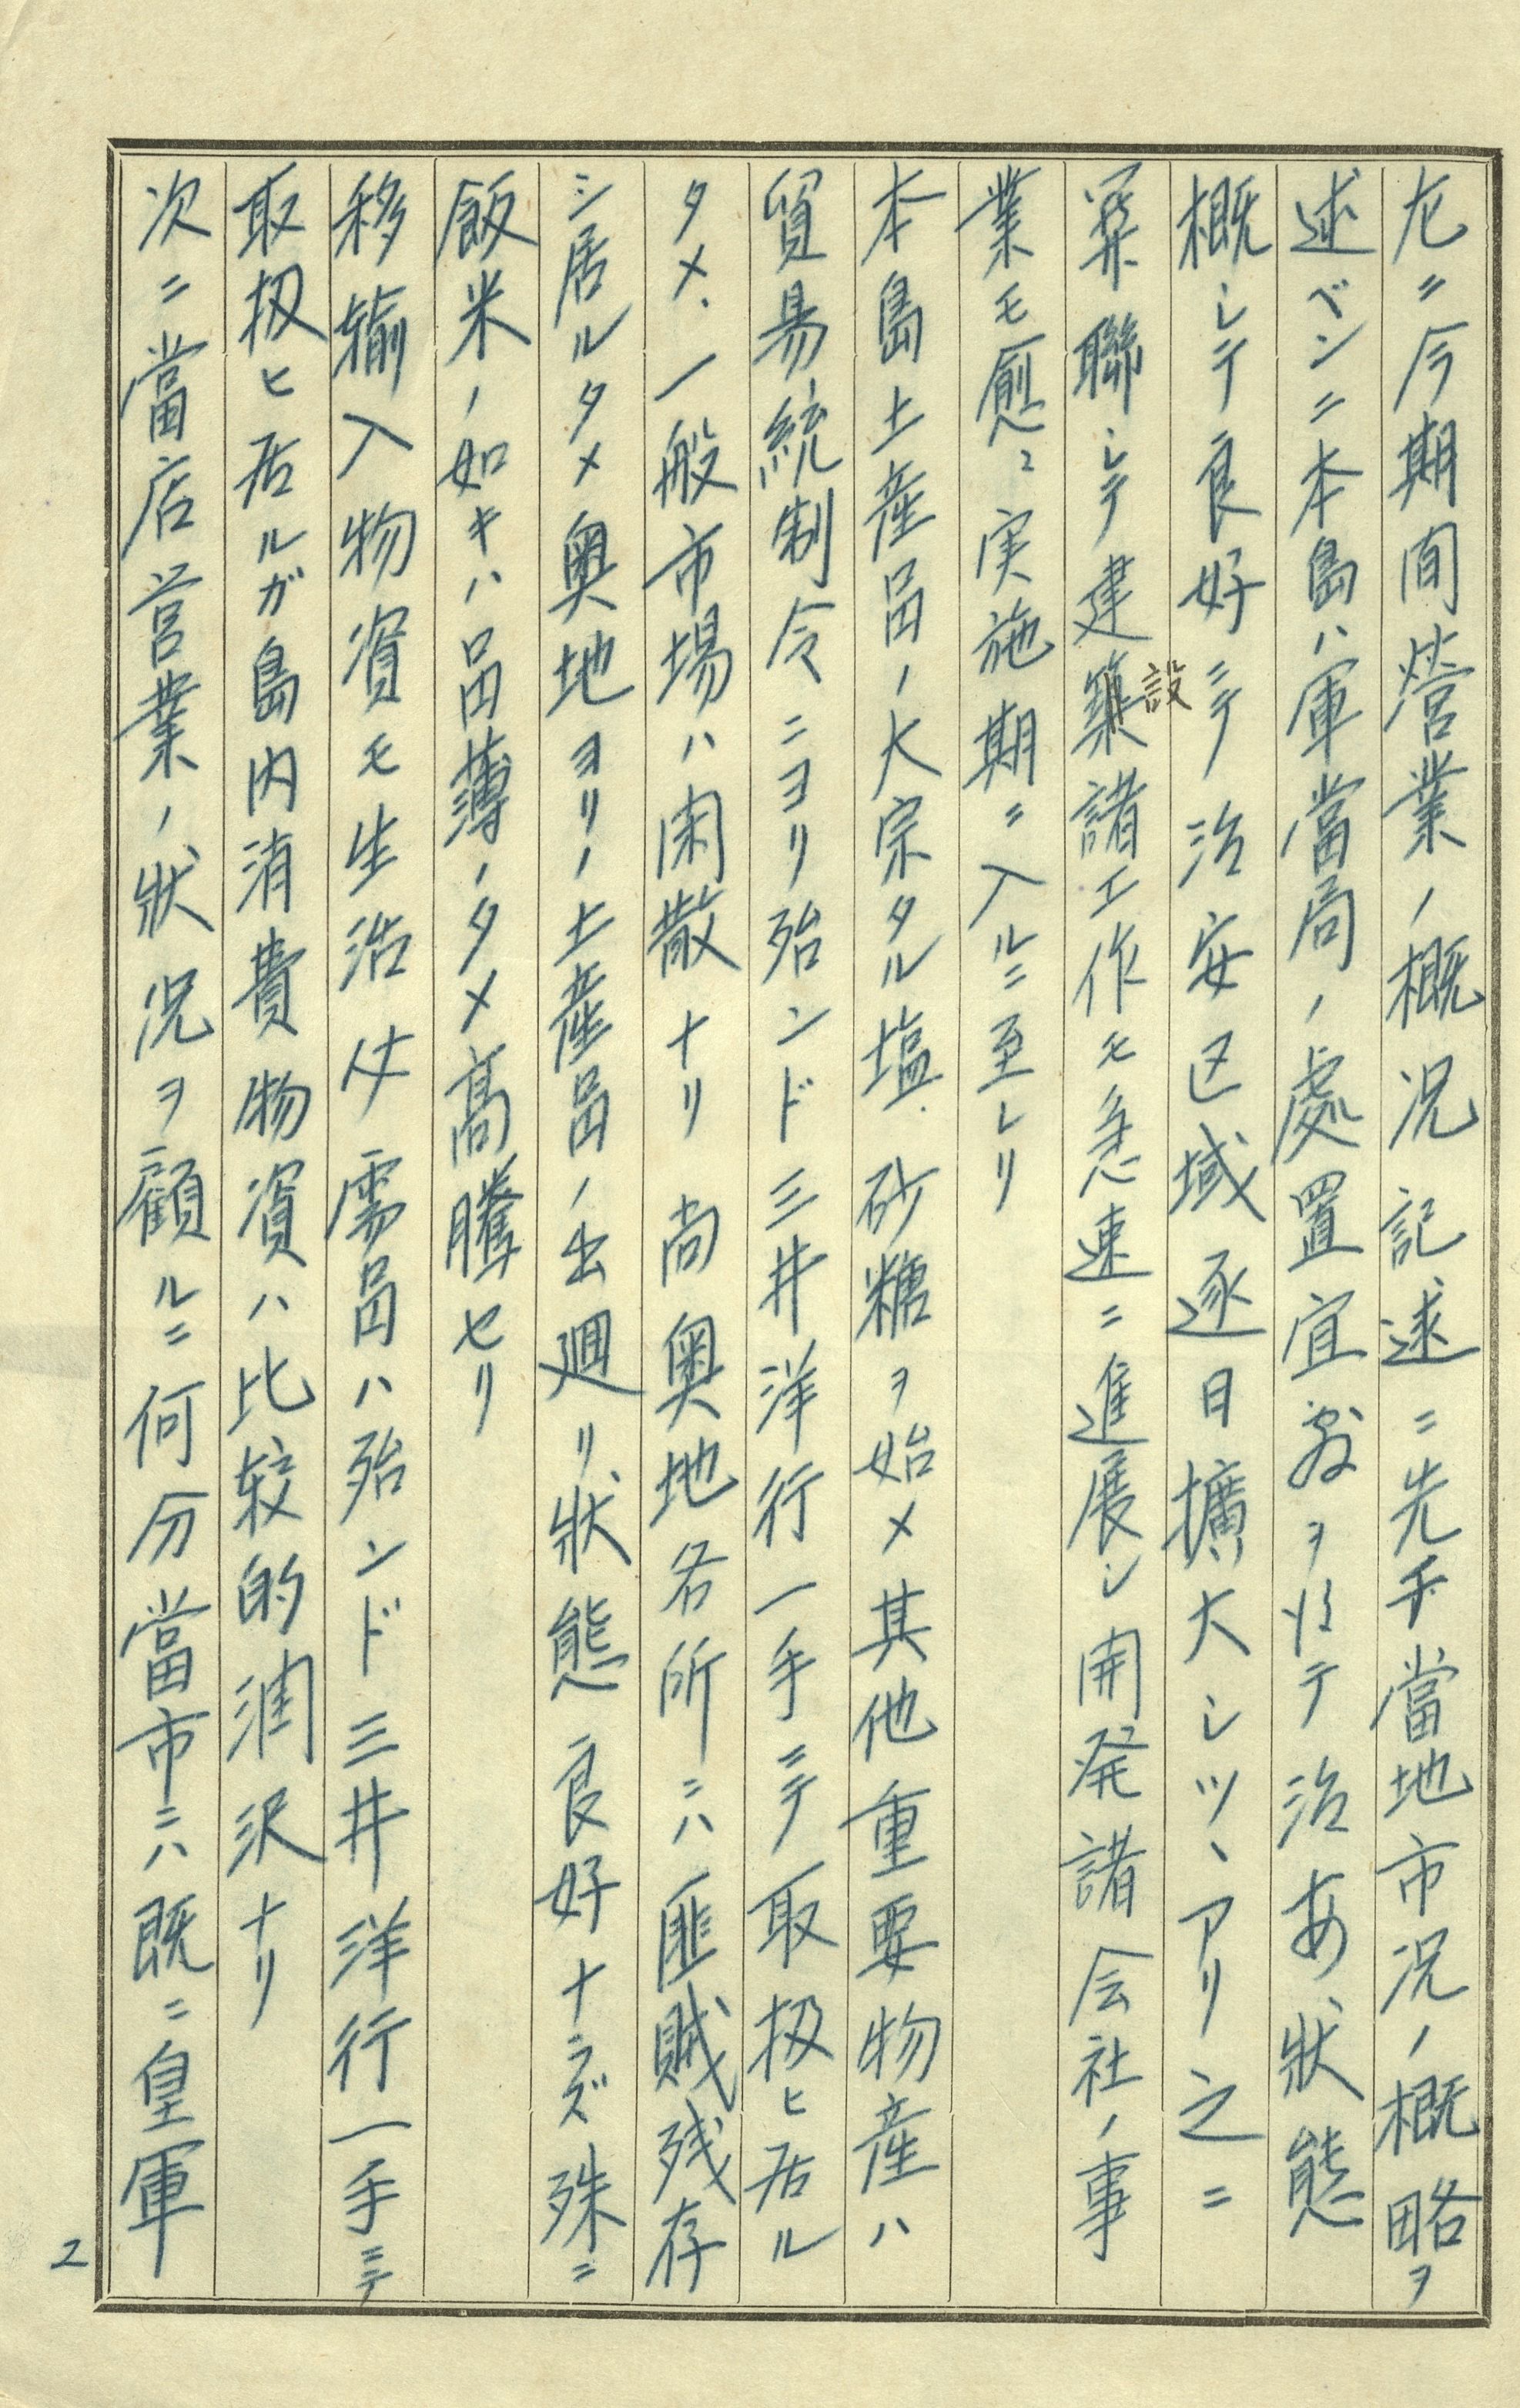 尤ニ今期間營業ノ概況記述ニ先チ當地市況ノ概略ヲ
述ベンニ本島ハ軍當局ノ處置宜敷ヲ得テ治安狀態
概シテ良好ニテ治安区域逐日擴大シツヽアリ之ニ
聯シテ建築設諸工作モ急速ニ進展シ開発諸会社ノ事
業モ愈〻実施期ニ入ルニ至レリ
本島土産品ノ大宗タル塩、砂糖ヲ始メ其他重要物産ハ
貿易統制令ニヨリ殆ンド三井洋行一手ニテ取扱ヒ居ル
タメ、一般市場ハ閑散ナリ尚奥地各所ニハ匪賊残存
シ居ルタメ奥地ヨリノ土産品ノ出廻リ狀態良好ナラズ殊ニ
飯米ノ如キハ品薄ノタメ高騰セリ
移輸入物資モ生活必需品ハ殆ンド三井洋行一手ニテ
取扱ヒ居ルガ島内消費物資ハ比较的潤沢ナリ
次ニ當店営業ノ狀況ヲ顧ルニ何分當市ニハ既ニ皇軍
2